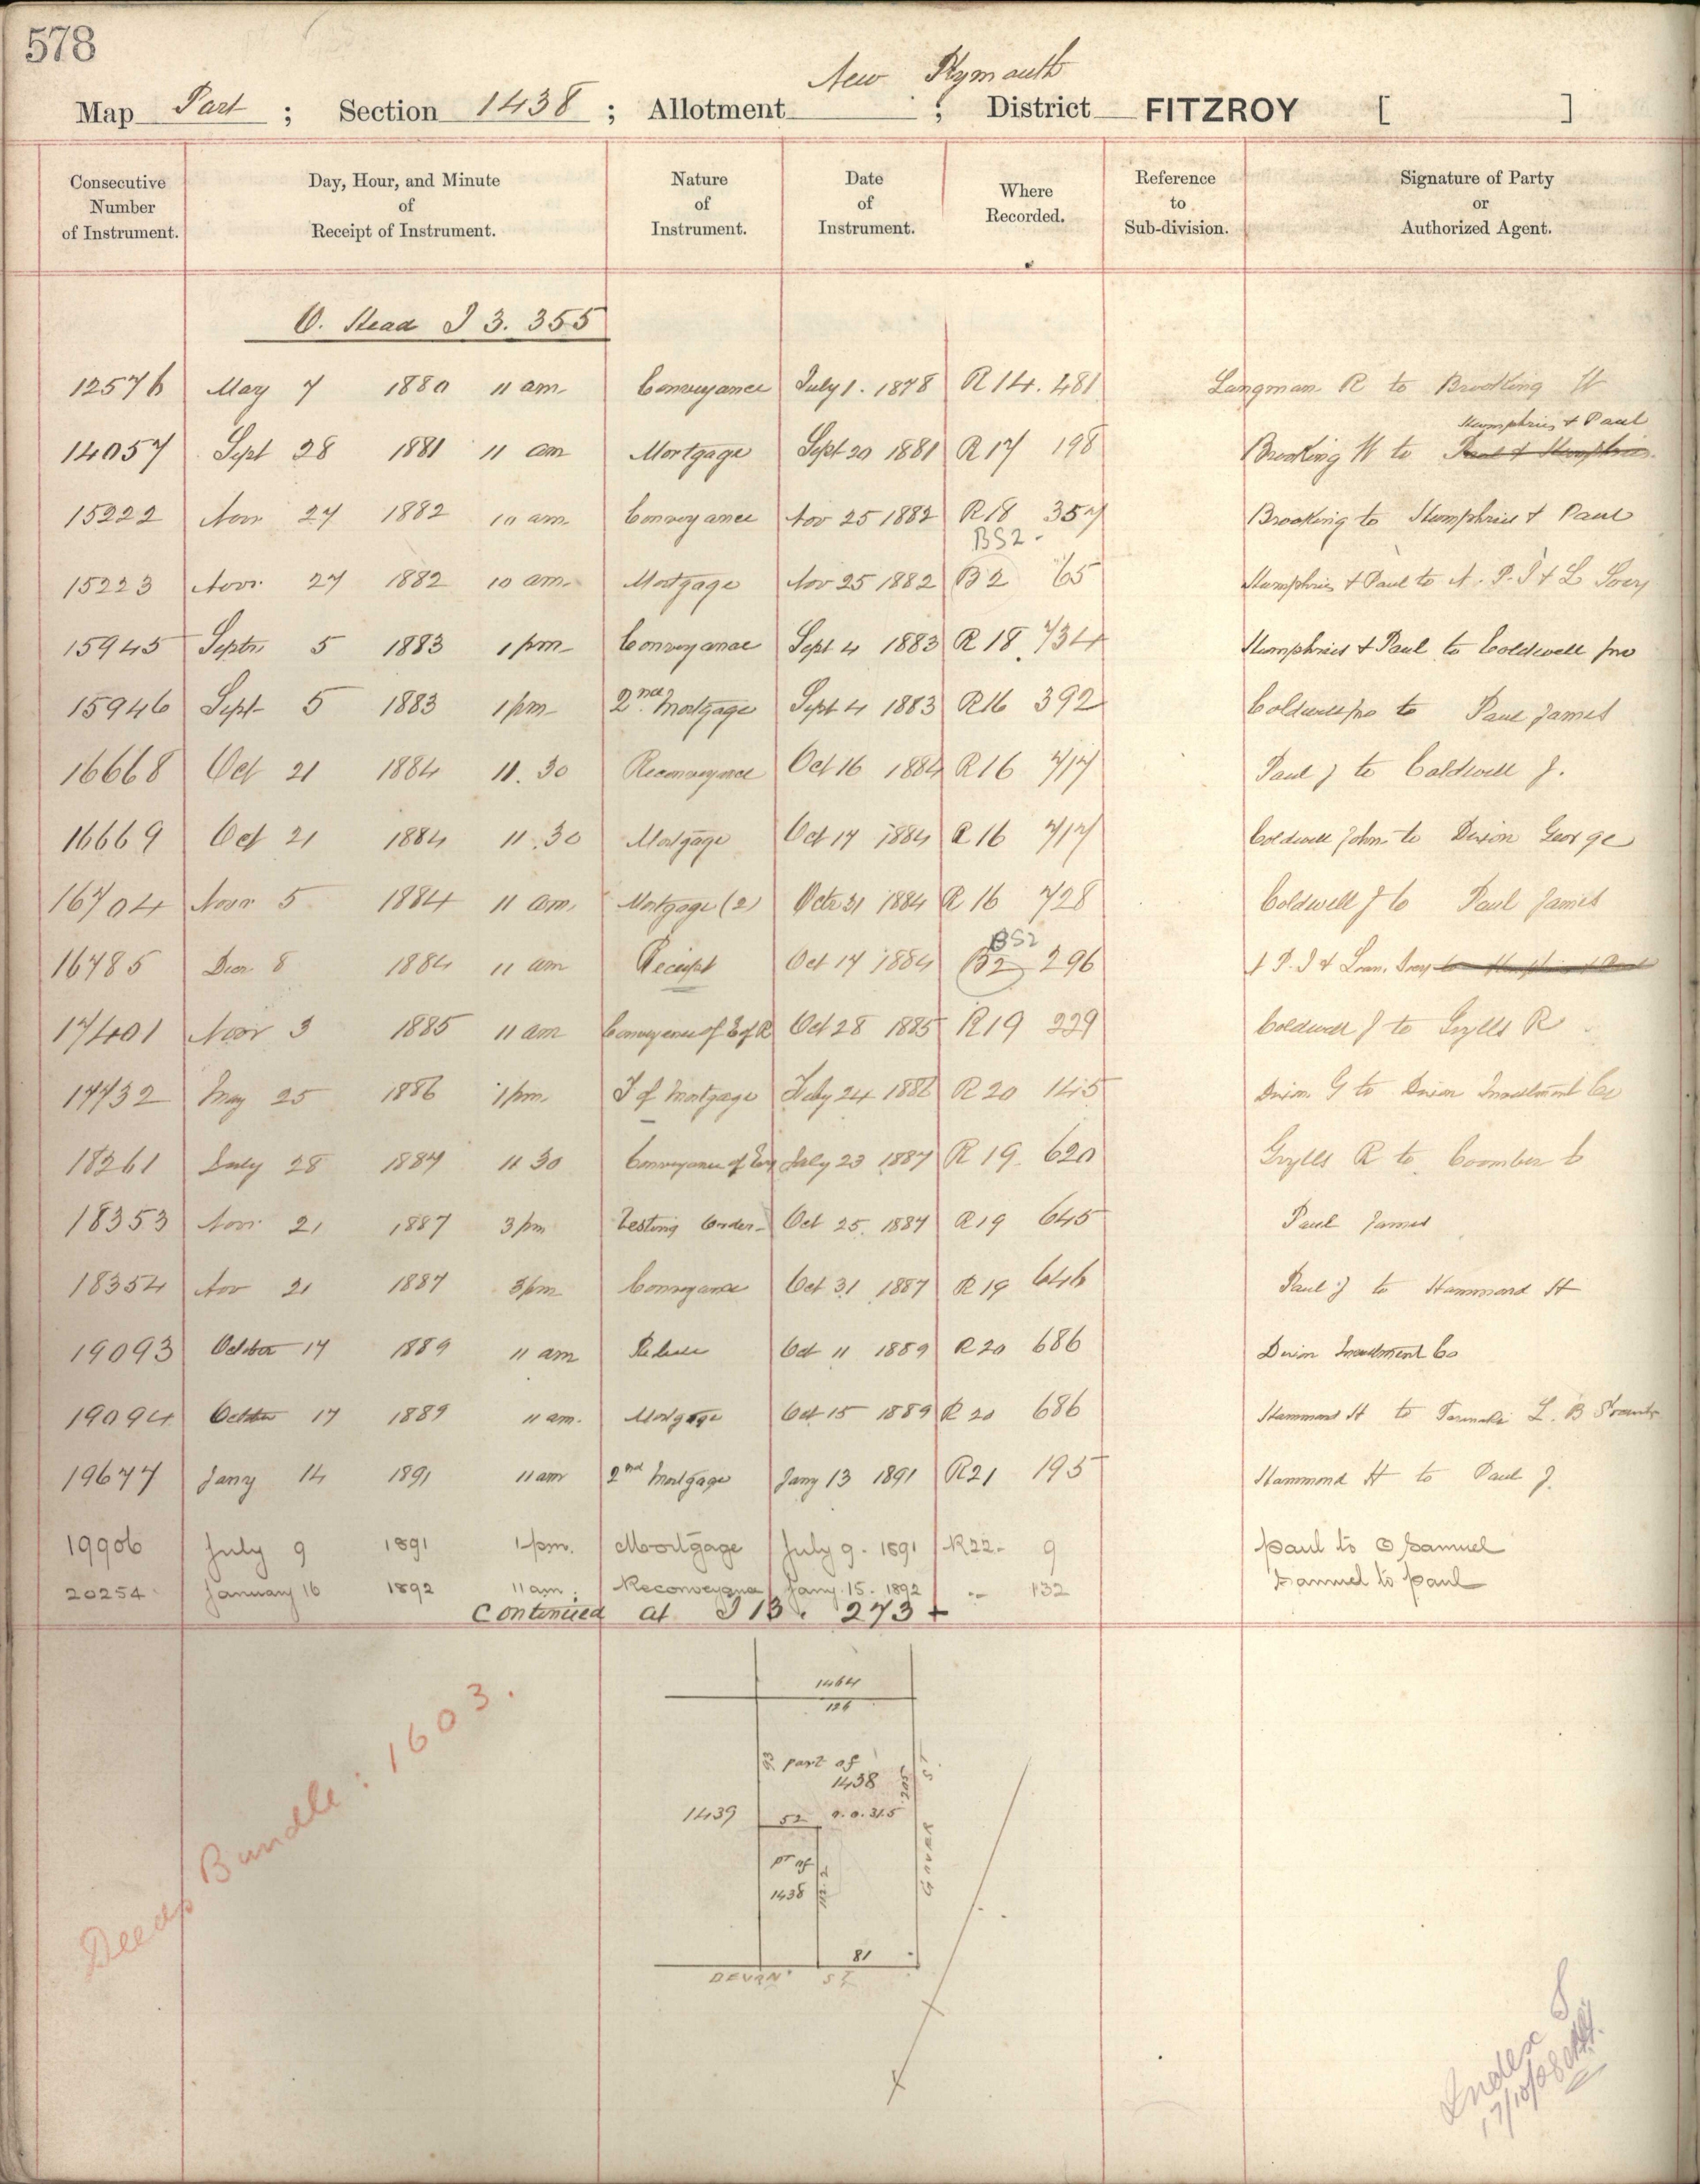 578
New Plymouth
Map Part ; Section 1438 ; Allotment ; District FITZROY [ ]
Consecutive Number of Instrument.
Day, Hour, and Minute of Receipt of Instrument.
Nature of Instrument.
Date of Instrument.
Where Recorded.
Reference to Sub-division.
Signature of Party or Authorized Agent.
O. Stead I 3. 355
12576 May 7 1880 11 am Conveyance July 1. 1878 R 14. 481 Langman R to Brooking W
Humphries & Paul
14057 Sept 28 1881 11 am Mortgage Sept 20 1881 R 17 198 Brooking W to Paul & Humphries
15222 Nov 27 1882 10 am Conveyance Nov 25 1882 R 18 357 Brooking to Humphries & Paul
BS2
15223 Novr 27 1882 10 am Mortgage Nov 25 1882 B 2 65 Humphries & Paul to N. P. I & L Socy
15945 Septr 5 1883 1 pm Conveyance Sept 4 1883 R 18 734 Humphries & Paul to Coldwell jno
15946 Sept 5 1883 1 pm 2nd Mortgage Sept 4 1883 R16 392 Coldwell jno to Paul James
16668 Oct 21 1884 11.30 Reconveyance Oct 16 1884 R16 717 Paul J to Caldwell J.
16669 Oct 21 1884 11.30 Mortgage Oct 17 1884 R 16 717 Coldwell John to Dixon George
16704 Novr 5 1884 11 am Mortgage (2) Octr 31 1884 R 16 728 Coldwell J to Paul James
BS2
16785 Decr 8 1884 11 am Receipt Oct 17 1884 B2 296 N P. I & Loan. Socy to Humphries & Paul
17401 Novr 3 1885 11 am Conveyance of E of R Oct 28 1885 R19 229 Coldwell J to Grylls R
17732 May 25 1886 1 pm T of Mortgage Feby 24 1886 R 20 145 Dixon G to Dixon Investment Co
18261 July 28 1887 11 30 Conveyance of Eq July 23 1887 R 19. 620 Grylls R to Coomber C
18353 Novr 21 1887 3 pm Vesting Order Oct 25. 1887 R 19 645 Paul James
18354 Nov 21 1887 3 pm Conveyance Oct 31 1887 R 19 646 Paul J to Hammond H
19093 October 17 1889 11 am Release Oct 11 1889 R 20 686 Dixon Investment Co
19094 October 17 1889 11 am. Mortgage Oct 15 1889 R 20 686 Hammond H to Taranaki L. B
19677 Jany 14 1891 11 am 2nd Mortgage Jany 13 1891 R21 195 Hammond H to Paul J.
19906 July 9 1891 1 pm. Mortgage July 9. 1891 R22. 9 Paul to O Samuel
20254 January 16 1892 11 am. Reconveyance Jany. 15. 1892 " 132 Samuel to Paul
Continued at I 13. 273
1464
126
93 part of
1438
205
1439
52 0.0.31.5
pt of
1438
112.2
Gover St
81
DEVON ST
Deeds Bundle: 1603.
Index
17/10/08